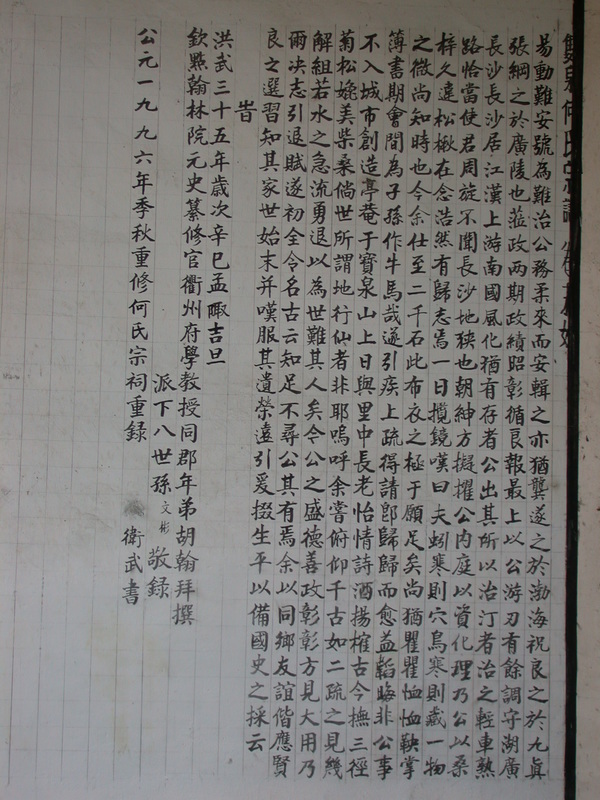 易動難安號為難治公務柔來而安輯之亦猶龔遂之於渤海祝良之於九真
張綱之於廣陵也蒞政兩期政績昭彰循良報最上以公游刃有餘調守湖廣
長沙長沙居江漢上游南國風化猶有存者公出其所以治汀者治之輕車熟
路恰當使君周旋不聞長沙地狹也朝紳方擬擢公內庭以資化理乃公以桑
梓久違松楸在念浩然有歸志焉一日攬鏡嘆曰夫蚓寒則穴鳥寒則藏一物
之微尚知時也今余仕至二千石此布衣之極于願足矣尚猶瞿瞿恤恤鞅掌
簿書期會間為子孫作牛馬哉遂引疾上疏得請即歸歸而愈益韜晦非公事
不入城市創造亭菴于寶泉山上日與里中長老怡情詩酒揚榷古今撫三徑
菊松媲美柴桑倘世所謂地行仙者非耶嗚呼余嘗俯仰千古如二疏之見幾
解組若水之急流勇退以為世難其人矣令公之盛德善政彰彰方見大用乃
爾決志引退賦遂初全令名古云知足不辱公其有焉余以同鄉友誼偕應賢
良之選習知其家世始末并嘆服其遺榮遠引爰掇生平以備國史之採云
旹
洪武三十五年歲次辛巳孟陬吉旦
欽點翰林院元史纂修官衢州府學教授同郡年弟胡翰拜撰
派下八世孫文彬敬錄
公元一九九六年季秋重修何氏宗祠重錄
衛武書